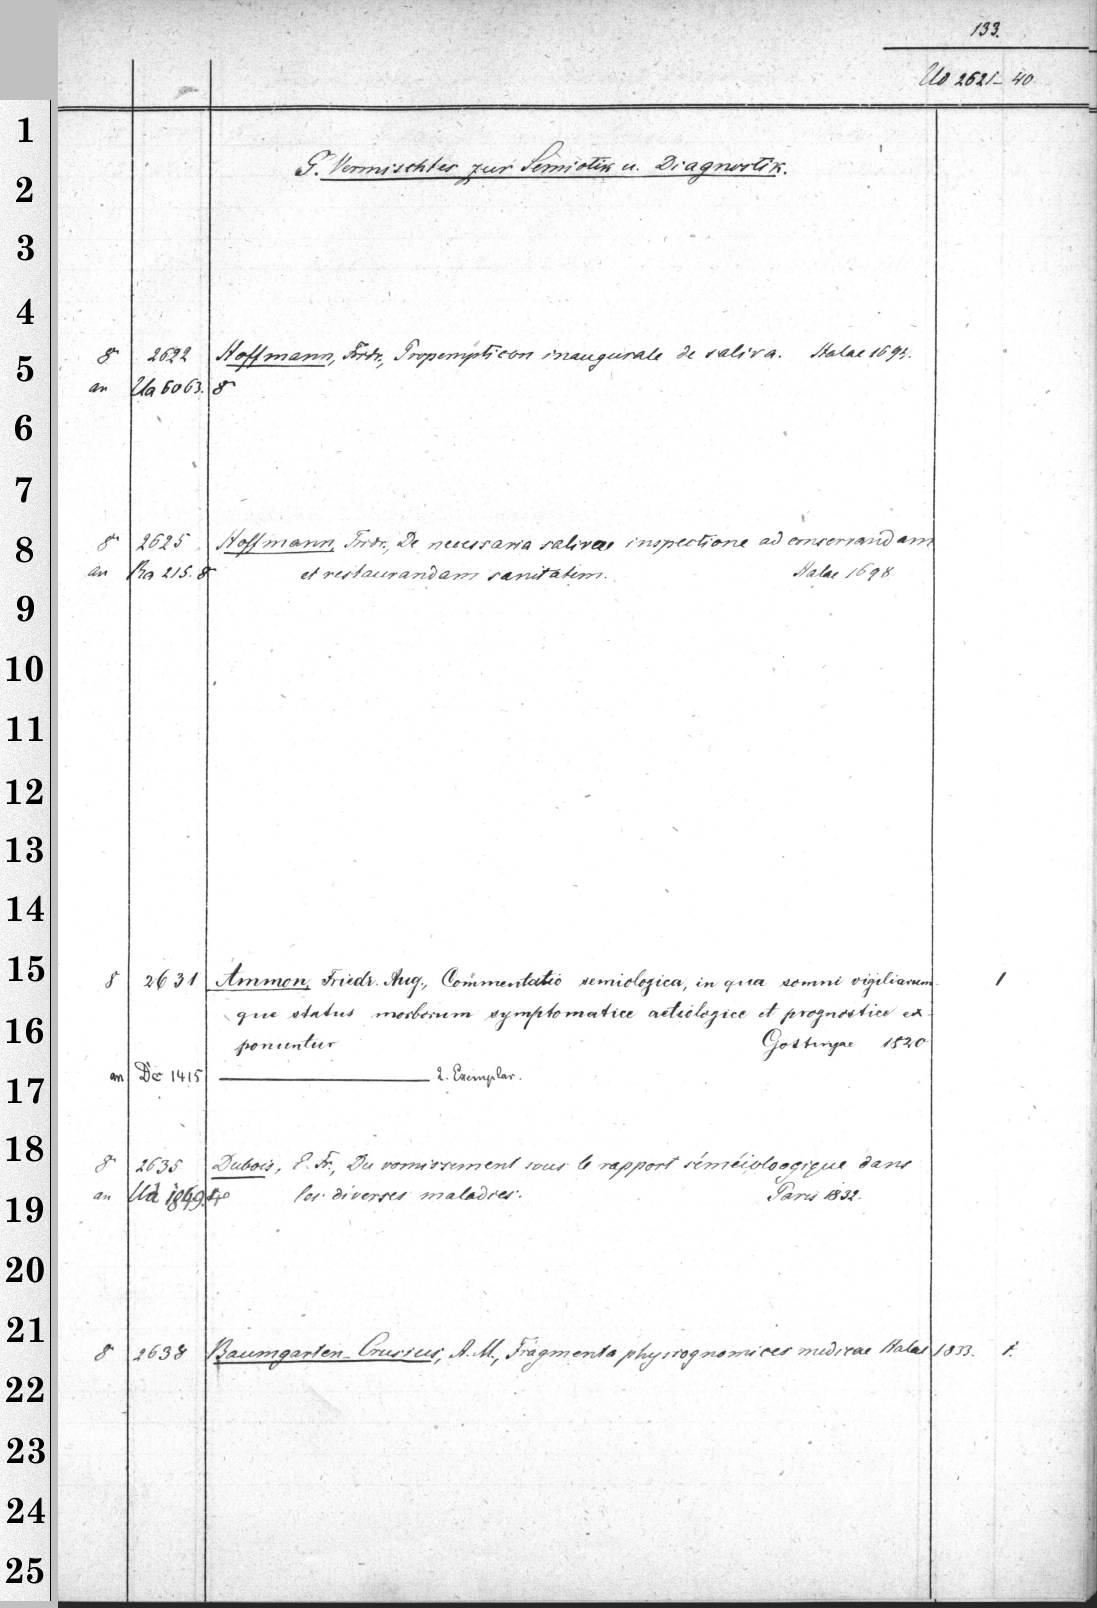 133.
Ud 2621-40
G. Vermischtes zur Semiotik u. Diagnostik.
1
2
3
4
5
6
7
8
9
10
11
12
13
14
15
16
17
18
19
20
21
22
23
24
25
8° 2622 Hoffmann, Frdr., Propempticon inaugurale de saliva. Halae 1694.
an Ua 6063. 8°
8° 2625 Hoffmann, Frdr., De necessaria salivae inspectione ad conservandam
an Ra 215. 8° et restaurandam sanitatem. Halae 1698.
8 2631 Ammon, Friedr. Aug., Commentatio semiologica, in qua somni vigiliarum- 1
que status morborum symptomatice aetiologice et prognostice ex-
ponuntur Gottingae 1820
an De 1415 2. Exemplar.
8° 2635 Dubois, E. Fr., Du vomissement sous le rapport séméioloogique dans
an Ud 1849. 4° les diverses maladies. Paris 1832.
8 2638 Baumgarten-Crusius, A. M., Fragmenta physiognomices medicae Halae 1833. 1.